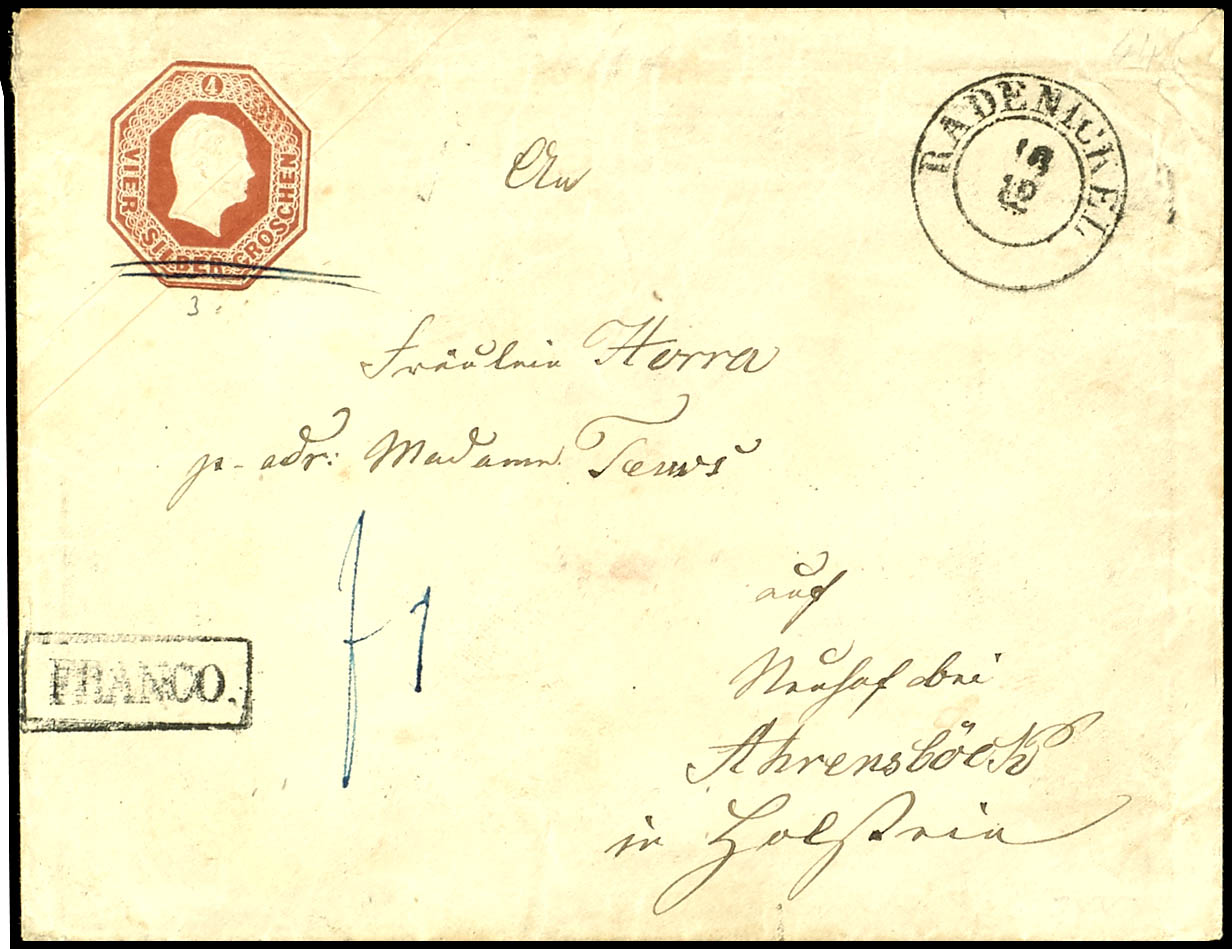 4
VIER SILBER GROSCHEN
3
RADENICKEL
18
12
An
Fräulein Horra
p. adr: Madame Taews
f 1
FRANCO.
auf
Neuhof bei
Ahrensböck
in Holstein